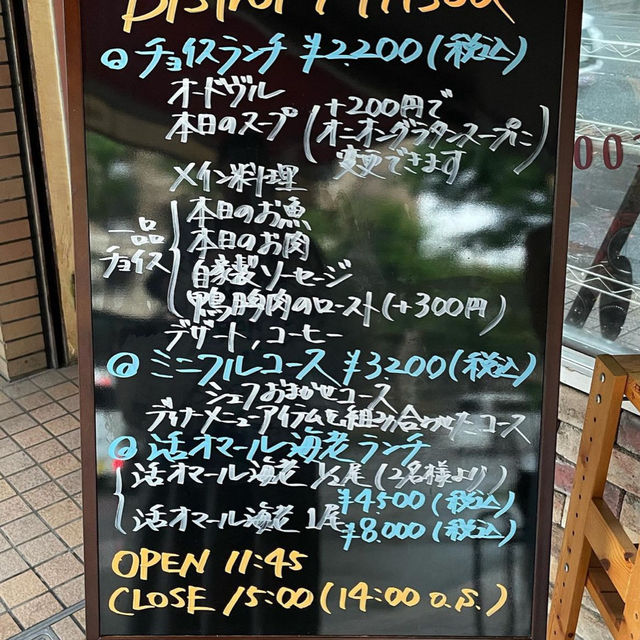 Bistro
② チョイスランチ ¥2.200(税込)
オードヴル
本日のスープ (+200円で
オニオングラタンスープに
変更できます)
メイン料理
一品チョイス
本日のお魚
本日のお肉
自家製ソーセージ
鴨胸肉のロースト(+300円)
デザート,コーヒー
ミニフルコース ¥3200(税込)
シェフおまかせコース
ディナーメニューアイテムを組み合わせたコース
活オマール海老ランチ
活オマール海老 1/2尾 (2名様より)
¥4500(税込)
活オマール海老 1尾
¥8.000(税込)
OPEN 11:45
CLOSE 15:00(14:00 o.s.)
00